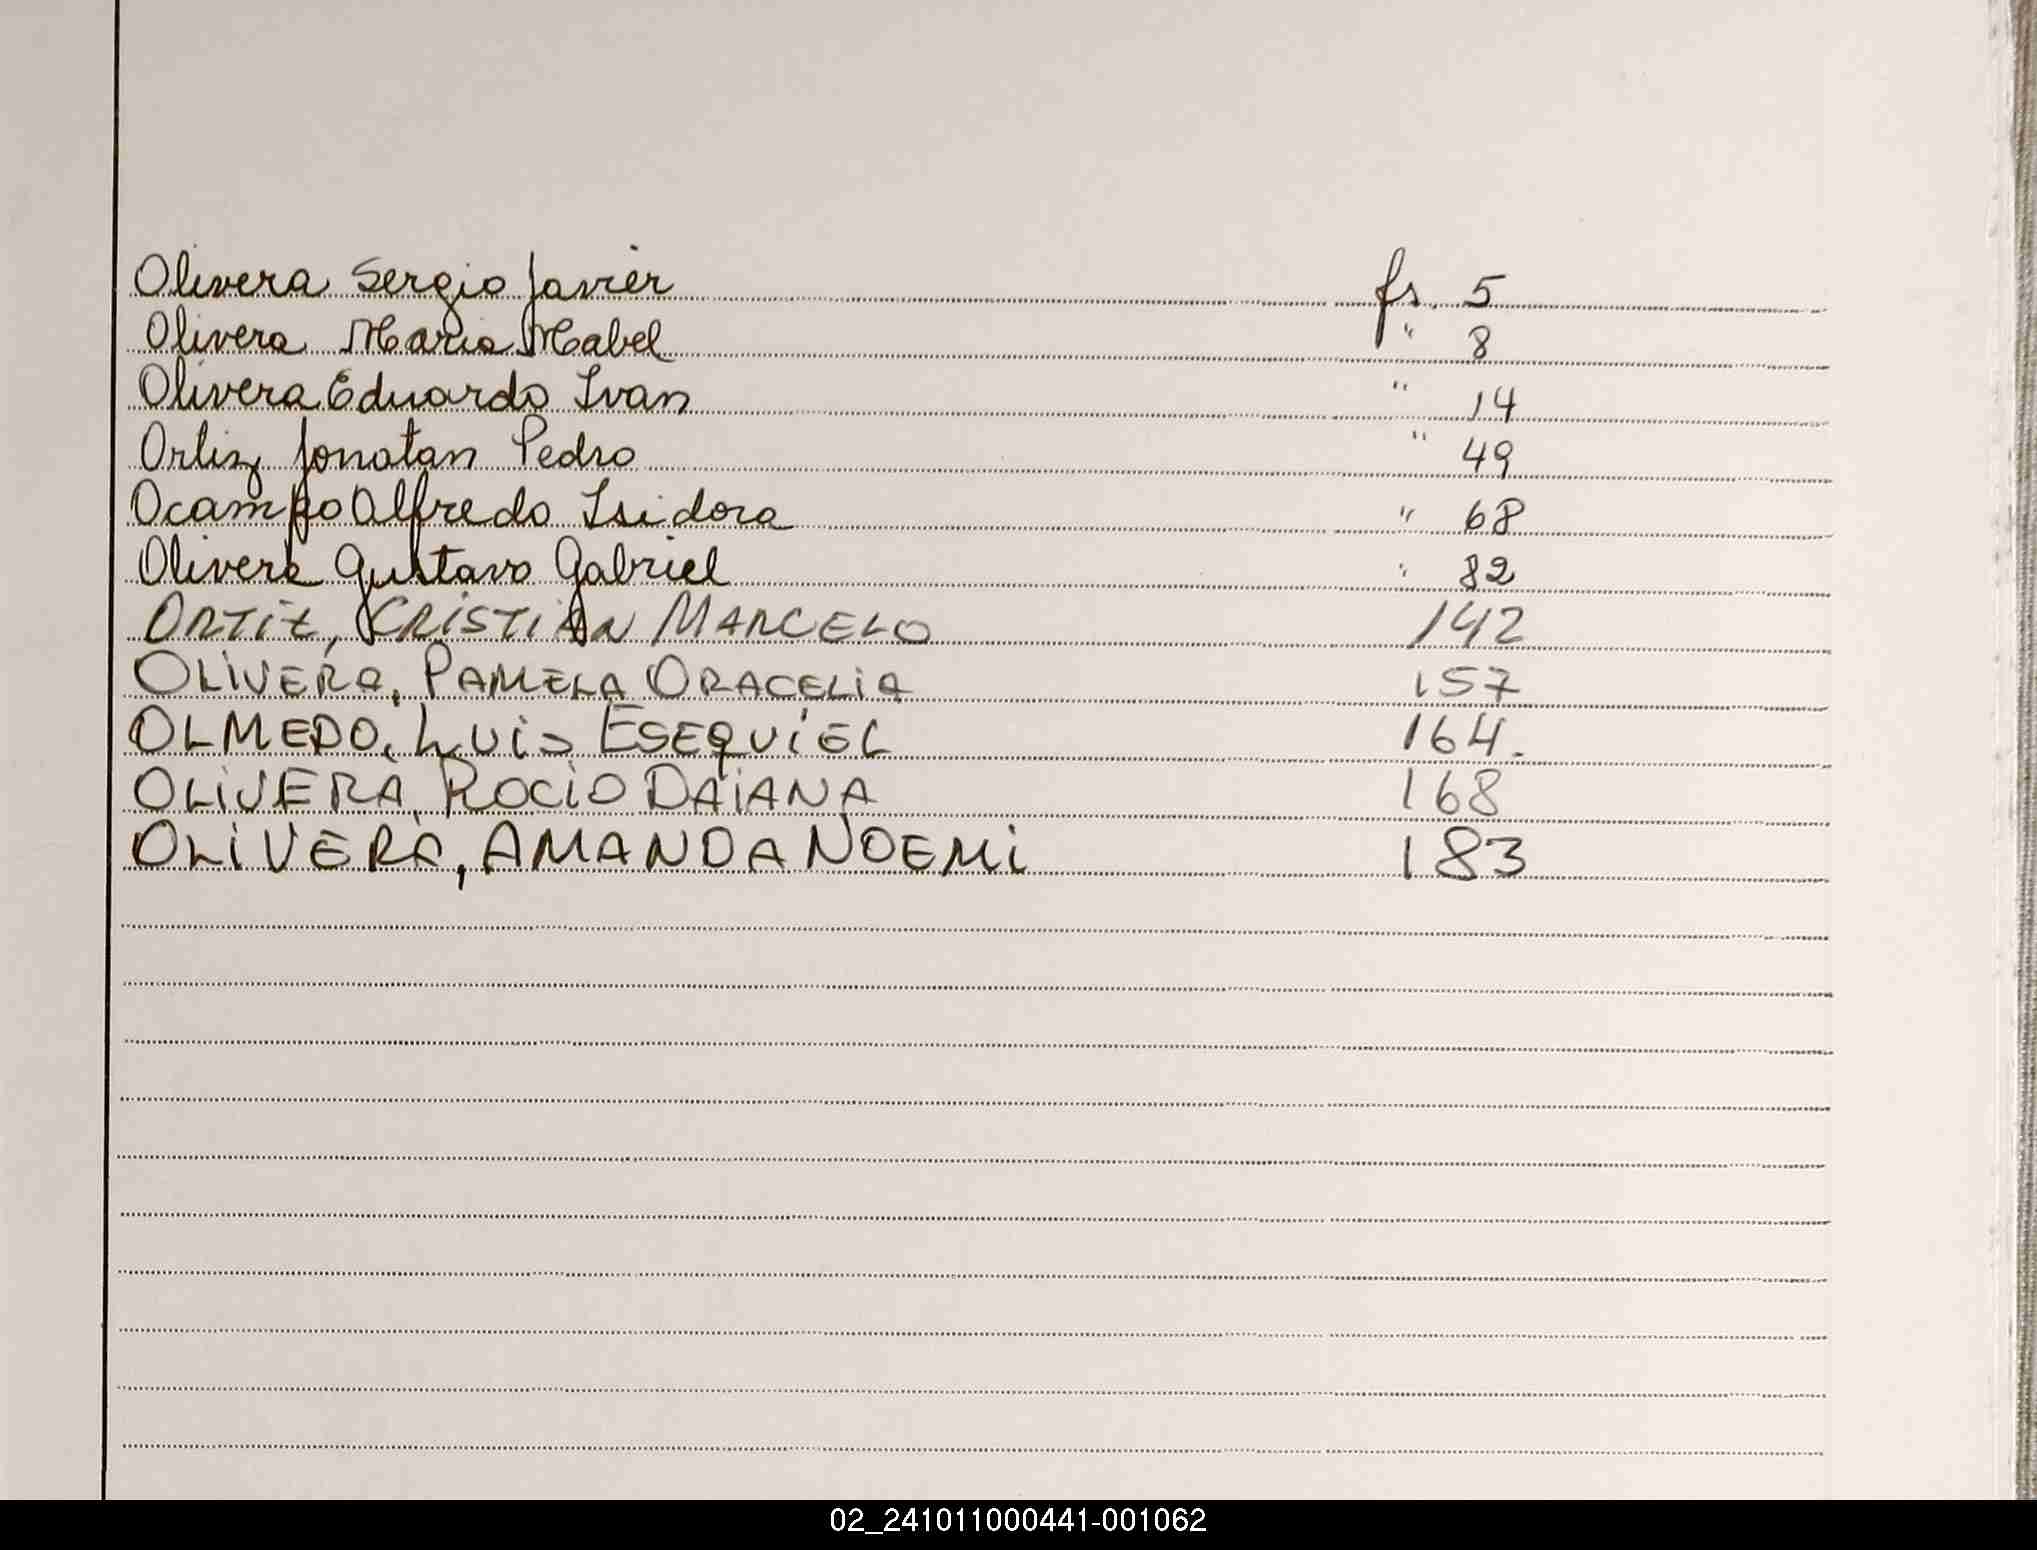 Olivera Sergio Javier fs. 5
Olivera Maria Mabel " 8
Olivera Eduardo Ivan " 14
Ortiz Jonatan Pedro " 49
Ocampo Alfredo Isidora " 68
Olivera Gustavo Gabriel " 82
ORTIZ, CRISTIAN MARCELO 142
OLIVERA, PAMELA ORACELIA 157
OLMEDO, LUIS ESEQUIEL 164.
OLIVERA, ROCIO DAIANA 168
OLIVERA, AMANDA NOEMI 183
02_241011000441-001062